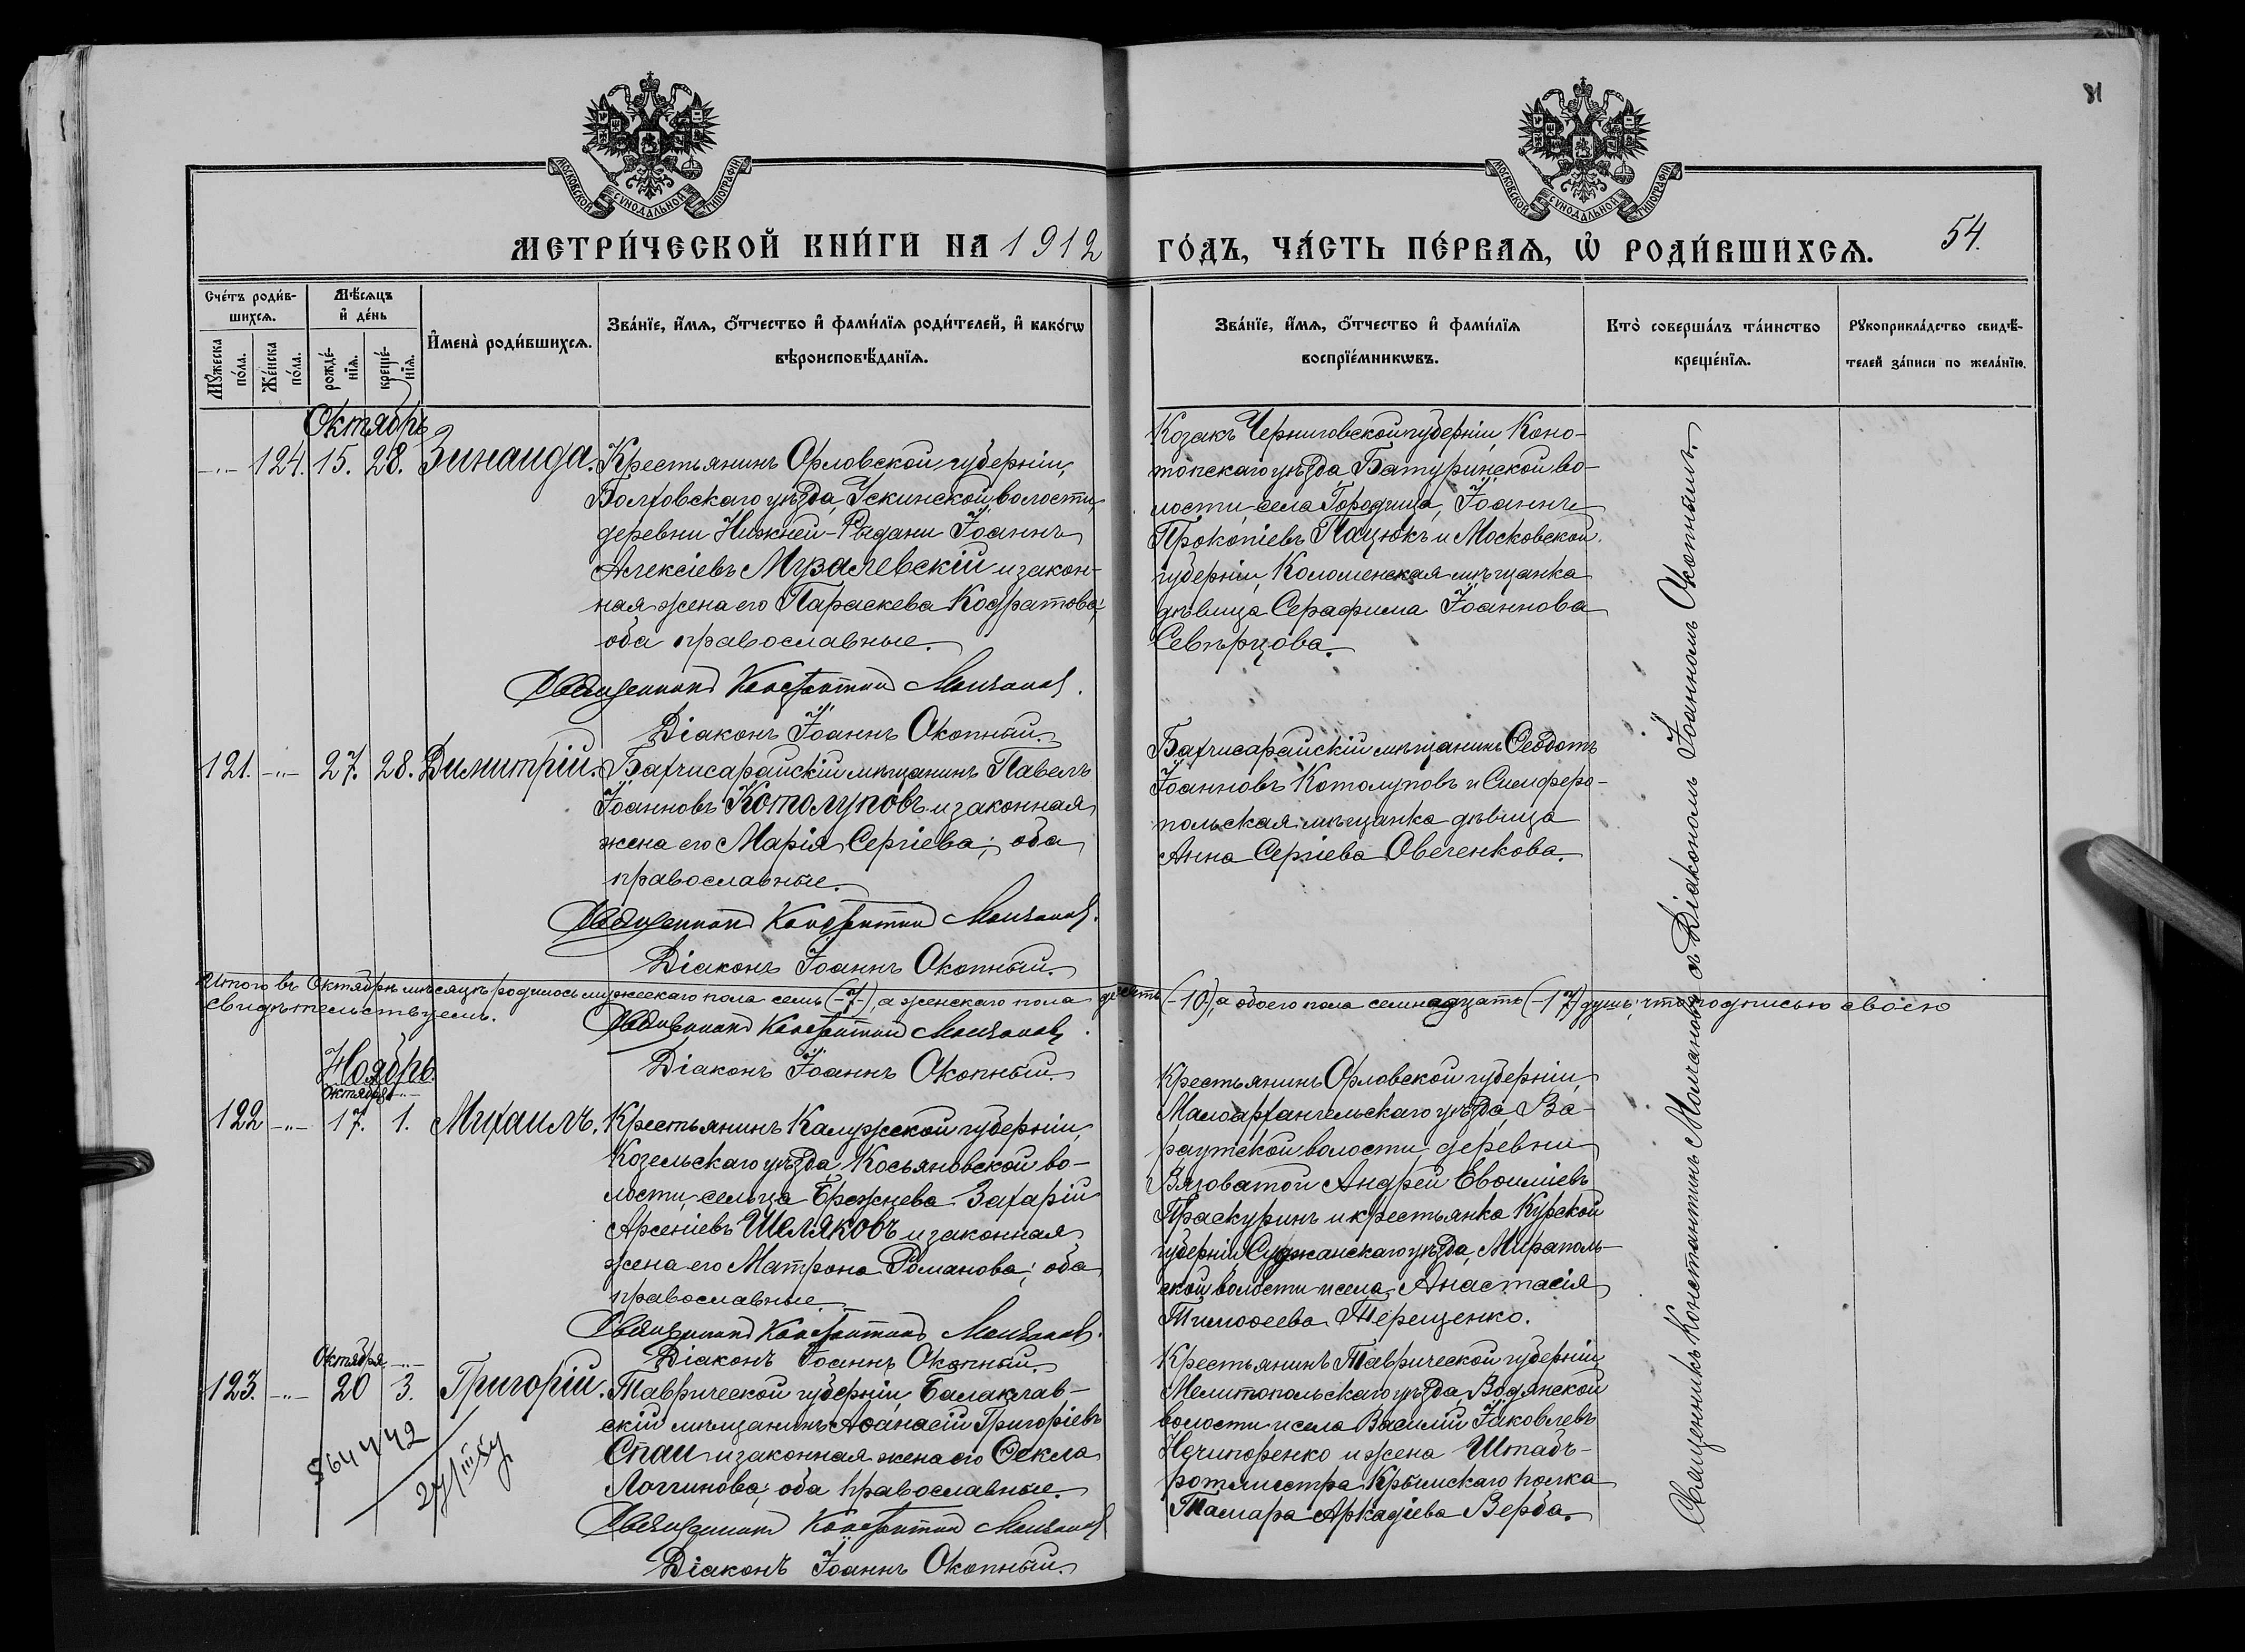 81
МОСКОВСКОЙ СѴНОДАЛЬНОЙ ТИПОГРАФІИ
МОСКОВСКОЙ СѴНОДАЛЬНОЙ ТИПОГРАФІИ
МЕТРИ́ЧЕСКОЙ КНИ́ГИ НА 1912
ГО́ДЪ, ЧА́СТЬ ПЕ́РВАѦ, Ѡ҆ РОДИ́ВШИХСѦ. 54.
Сче́тъ роди́в-
шихсѧ.
Мѣ́сѧцъ
и҆ де́нь
Мꙋ́жеска по́ла.
Же́нска по́ла.
рожде́-
нїѧ.
креще́-
нїѧ.
И҆мена̀ роди́вшихсѧ.
Зва́нїе, и҆́мѧ, ѻ҆́тчество и҆ фами́лїѧ роди́телей, и҆ како́гѡ
вѣроисповѣ́данїѧ.
Зва́нїе, и҆́мѧ, ѻ҆́тчество и҆ фами́лїѧ
воспрїе́мникѡвъ.
Кто̀ соверша́лъ та́инство
креще́нїѧ.
Рꙋкоприкла́дство свидѣ́-
телей за́писи по жела́нїю.
Октябрь
-"- 124. 15. 28. Зинаида.
Крестьянинъ Орловской губерніи,
Болховскаго уѣзда, Ускинской волости,
деревни Нижней-Рыдани Іоаннъ
Алексіевъ Музалевскій и закон-
ная жена его Параскева Кодратова;
оба православные.
Священникъ Константинъ Молчановъ.
Діаконъ Іоаннъ Окопный.
Козакъ Черниговской губерніи, Коно-
топскаго уѣзда, Батуринской во-
лости, села Городища, Іоаннъ
Прокопіевъ Пацюкъ и Московской
губерніи, Коломенская мѣщанка
дѣвица Серафима Іоаннова
Севѣрцова.
121. -"- 27. 28. Димитрій.
Бахчисарайскій мѣщанинъ Павелъ
Іоанновъ Котолуповъ и законная
жена его Марія Сергіева; оба
православные.
Священникъ Константинъ Молчановъ.
Діаконъ Іоаннъ Окопный.
Бахчисарайскій мѣщанинъ Ѳеодотъ
Іоанновъ Котолуповъ и Симферо-
польская мѣщанка дѣвица
Анна Сергіева Овеченкова.
Итого въ Октябрѣ мѣсяцѣ родилось мужескаго пола семь (-7-), а женскаго пола десять (-10), а обоего пола семнадцать (-17) душъ; что подписью своею
свидѣтельствуемъ.
Священникъ Константинъ Молчановъ.
Діаконъ Іоаннъ Окопный.
Ноябрь.
Октября -"-
122 -"- 17. 1. Михаилъ.
Крестьянинъ Калужской губерніи,
Козельскаго уѣзда, Косьяновской во-
лости, сельца Брежнева Захарій
Арсеніевъ Шеляковъ и законная
жена его Матрона Романова; оба
православные
Священникъ Константинъ Молчановъ.
Діаконъ Іоаннъ Окопный.
Крестьянинъ Орловской губерніи,
Малоархангельскаго уѣзда, Ва-
раутской волости, деревни
Вязоватой Андрей Евѳиміевъ
Праскуринъ и крестьянка Курской
губерніи, Суджанскаго уѣзда, Мираполь-
ской волости и села Анастасія
Тимоѳеева Терещенко.
Октября -"-
123. -"- 20 3. Григорій.
Таврической губерніи, Балаклав-
скій мѣщанинъ Аѳанасій Григоріевъ
Спаи и законная жена его Ѳекла
Логгинова; оба православные.
Священникъ Константинъ Молчановъ
Діаконъ Іоаннъ Окопный.
Крестьянинъ Таврической губерніи
Мелитопольскаго уѣзда, Водянской
волости и села Василій Іаковлевъ
Нечипоренко и жена Штабъ-
ротмистра Крымскаго полка
Тамара Аркадіева Верба.
Священникъ Константинъ Молчановъ съ Діакономъ Іоанномъ Окопнымъ.